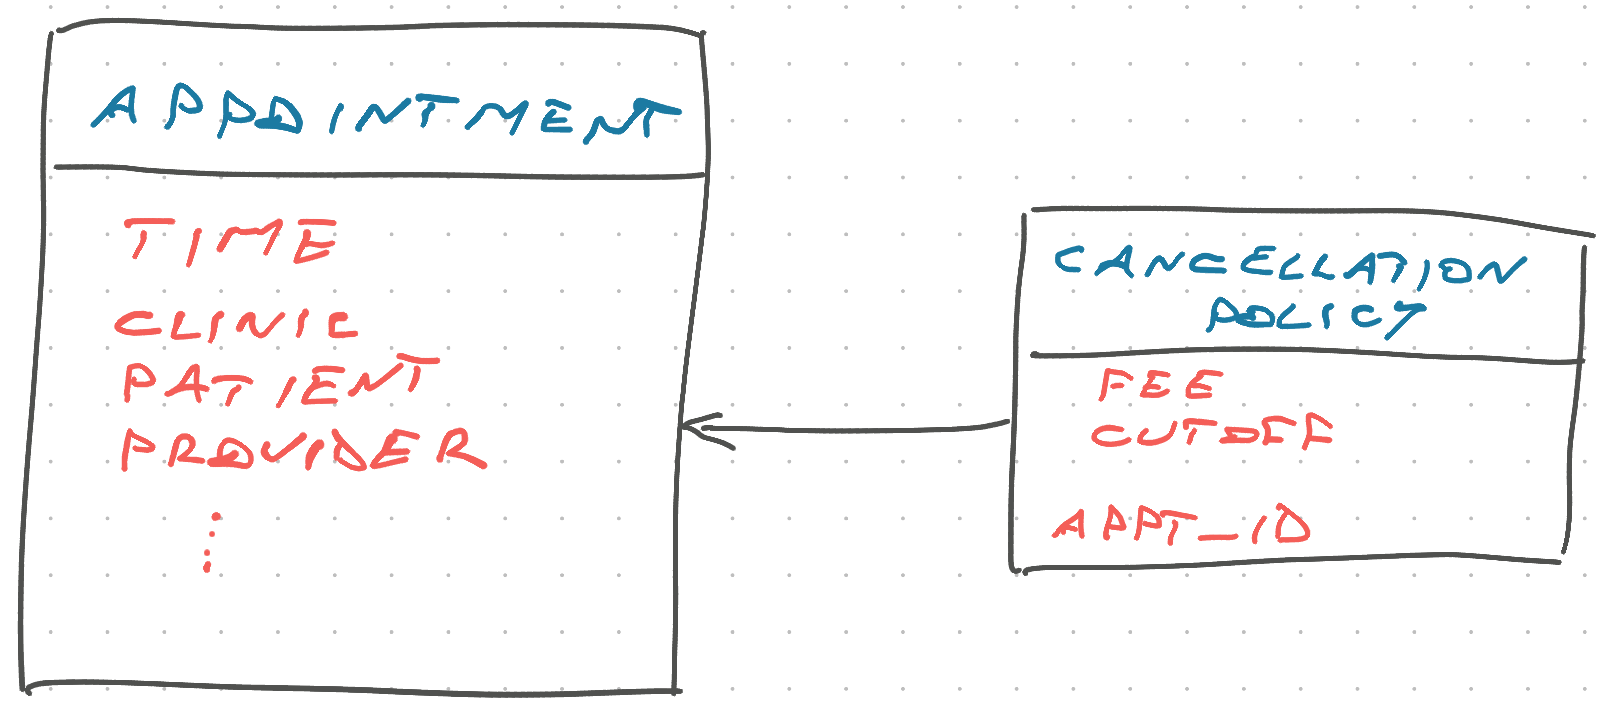 APPOINTMENT
TIME
CLINIC
PATIENT
PROVIDER
⋮
CANCELLATION
POLICY
FEE
CUTOFF
APPT_ID